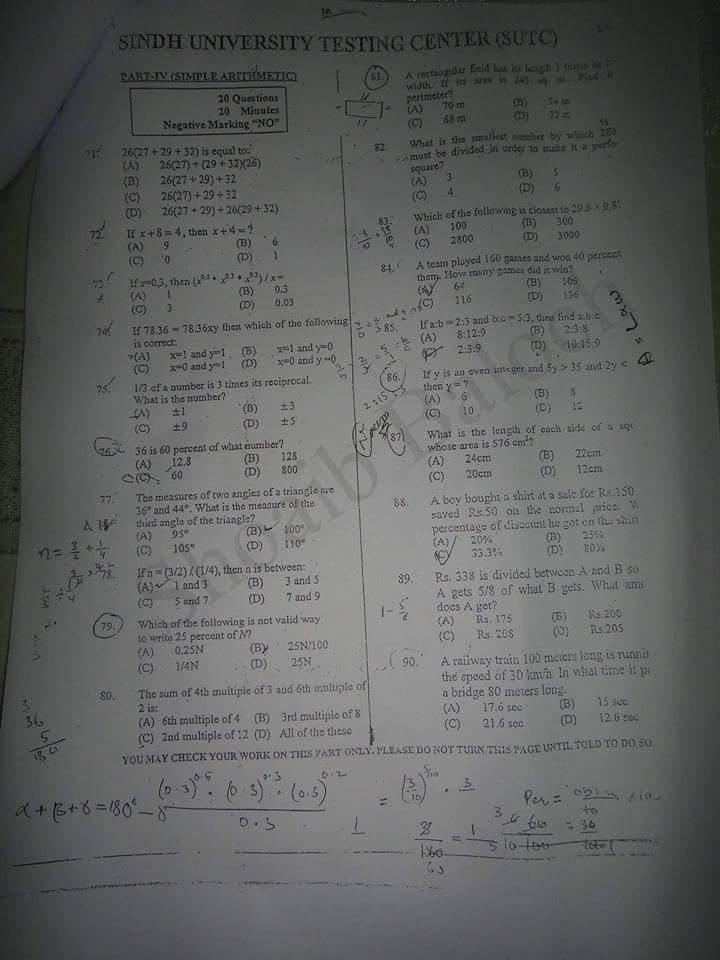 SINDH UNIVERSITY TESTING CENTER (SUTC)
PART-IV (SIMPLE ARITHMETIC)
20 Questions
20 Minutes
Negative Marking "NO"
71. 26(27 + 29 + 32) is equal to:
(A) 26(27) + (29 + 32)(26)
(B) 26(27 + 29) + 32
(C) 26(27) + 29 + 32
(D) 26(27 + 29) + 26(29 + 32)
72. If x + 8 = 4, then x + 4 = ?
(A) 9 (B) 6
(C) 0 (D) 1
73. If x=0.3, then (x^0.5 * x^0.3 * x^0.2) / x =
(A) 1 (B) 0.3
(C) 3 (D) 0.03
74. If 78.36 = 78.36xy then which of the following
is correct:
(A) x=1 and y=1 (B) x=1 and y=0
(C) x=0 and y=1 (D) x=0 and y=0
75. 1/3 of a number is 3 times its reciprocal.
What is the number?
(A) ±1 (B) ±3
(C) ±9 (D) ±5
76. 36 is 60 percent of what number?
(A) 12.8 (B) 128
(C) 60 (D) 800
77. The measures of two angles of a triangle are
36° and 44°. What is the measure of the
third angle of the triangle?
(A) 95° (B) 100°
(C) 105° (D) 110°
78. If n = (3/2) / (1/4), then n is between:
(A) 1 and 3 (B) 3 and 5
(C) 5 and 7 (D) 7 and 9
79. Which of the following is not valid way
to write 25 percent of N?
(A) 0.25N (B) 25N/100
(C) 1/4N (D) 25N
80. The sum of 4th multiple of 3 and 6th multiple of
2 is:
(A) 6th multiple of 4 (B) 3rd multiple of 8
(C) 2nd multiple of 12 (D) All of the these
81. A rectangular field has its length 3 times as
width. If its area is 243 sq. m. Find
perimeter?
(A) 70 m (B) 74 m
(C) 68 m (D) 72 m
82. What is the smallest number by which 288
must be divided in order to make it a perfe
square?
(A) 3 (B) 5
(C) 4 (D) 6
83. Which of the following is closest to 29.8 × 9.8?
(A) 100 (B) 300
(C) 2800 (D) 3000
84. A team played 160 games and won 40 percent
them. How many games did it win?
(A) 64 (B) 106
(C) 116 (D) 136
85. If a:b = 2:3 and b:c = 5:3, then find a:b:c
(A) 8:12:9 (B) 2:3:8
(C) 2:3:9 (D) 10:15:9
86. If y is an even integer and 5y > 35 and 2y <
then y = ?
(A) 6 (B) 8
(C) 10 (D) 12
87. What is the length of each side of a squ
whose area is 576 cm²?
(A) 24cm (B) 22cm
(C) 20cm (D) 12cm
88. A boy bought a shirt at a sale for Rs.150
saved Rs.50 on the normal price. W
percentage of discount he got on the shirt
(A) 20% (B) 25%
(C) 33.3% (D) 80%
89. Rs. 338 is divided between A and B so
A gets 5/8 of what B gets. What amo
does A get?
(A) Rs. 175 (B) Rs.200
(C) Rs. 208 (D) Rs.205
90. A railway train 100 meters long is runni
the speed of 30 km/h. In what time it p
a bridge 80 meters long.
(A) 17.6 sec (B) 15 sec
(C) 21.6 sec (D) 12.6 sec
YOU MAY CHECK YOUR WORK ON THIS PART ONLY. PLEASE DO NOT TURN THIS PAGE UNTIL TOLD TO DO SO.
Shoaib Baloch
n = 3/2 ÷ 1/4
3
36
5
180
α + β + γ = 180°
(0.3)^0.5 · (0.3)^0.3 · (0.3)^0.2
0.3